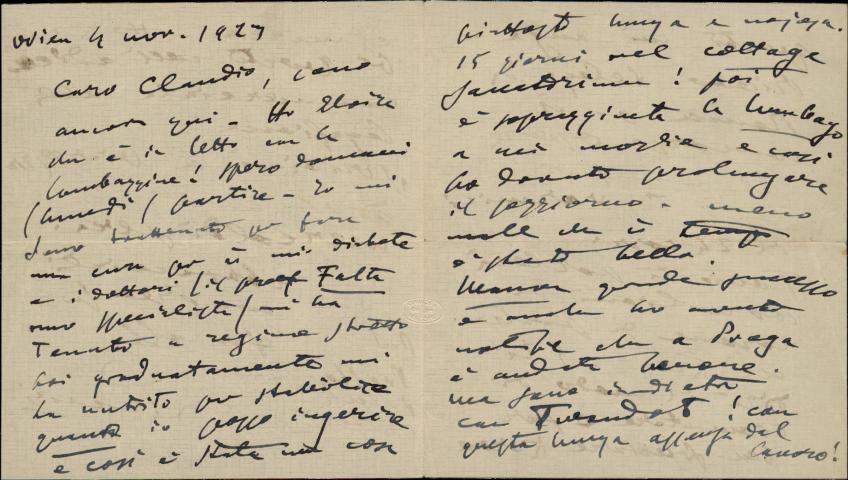 Vien 4 nov. 1923
Caro Claudio, sono
ancora qui - Ho Elvira
che è in letto con la
lombaggine! spero domani
(lunedì) partire - Io mi
sono trattenuto per fare
una cura per il mio diabete
e i dottori (il prof Falta
uno specialista) mi ha
tenuto a regime stretto
poi gradatamente mi
ha nutrito per stabilire
quanto io posso ingerire
e così è stata una cosa
piuttosto lunga e noiosa.
15 giorni nel cottage
Sanatorium! poi
è sopraggiunta la lumbago
a mia moglie e così
ho dovuto prolungare
il soggiorno - meno
male che il tempo
è stato bello.
Manon grande successo
e anche ho avuto
notizie che a Praga
è andata benone.
ma sono indietro
con Turandot! con
questa lunga assenza dal
lavoro!